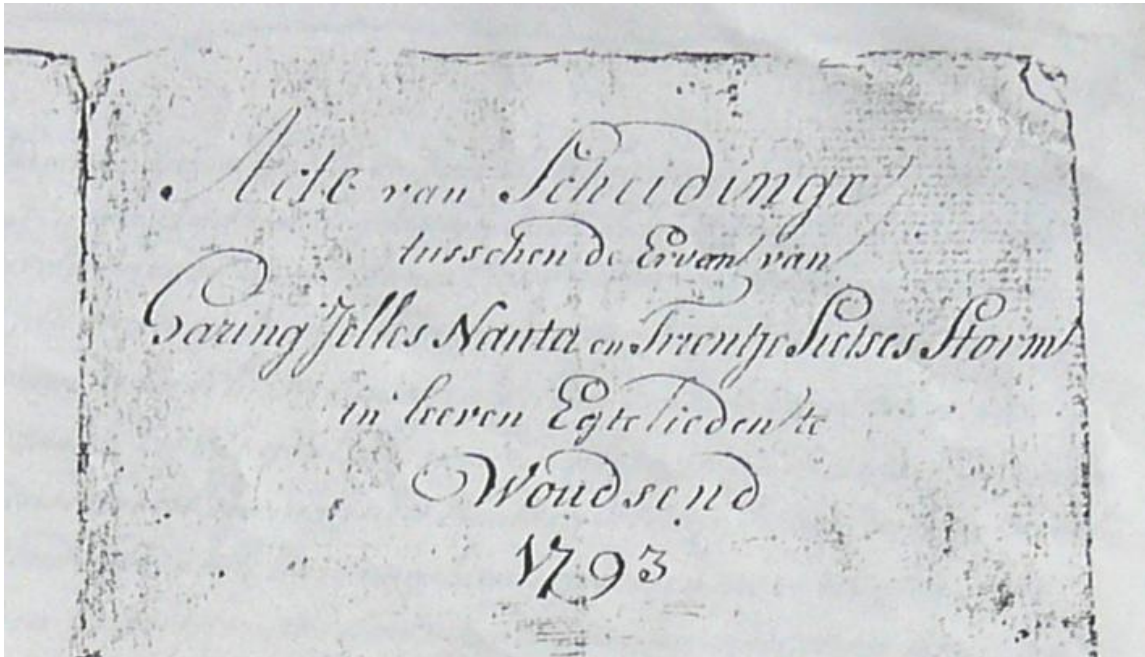 Acte van Scheidinge
tusschen de Erven van
Haring Jelles Nauta en Trientje Pietses Storm
in leeven Egteliedente
Woudsend
1793